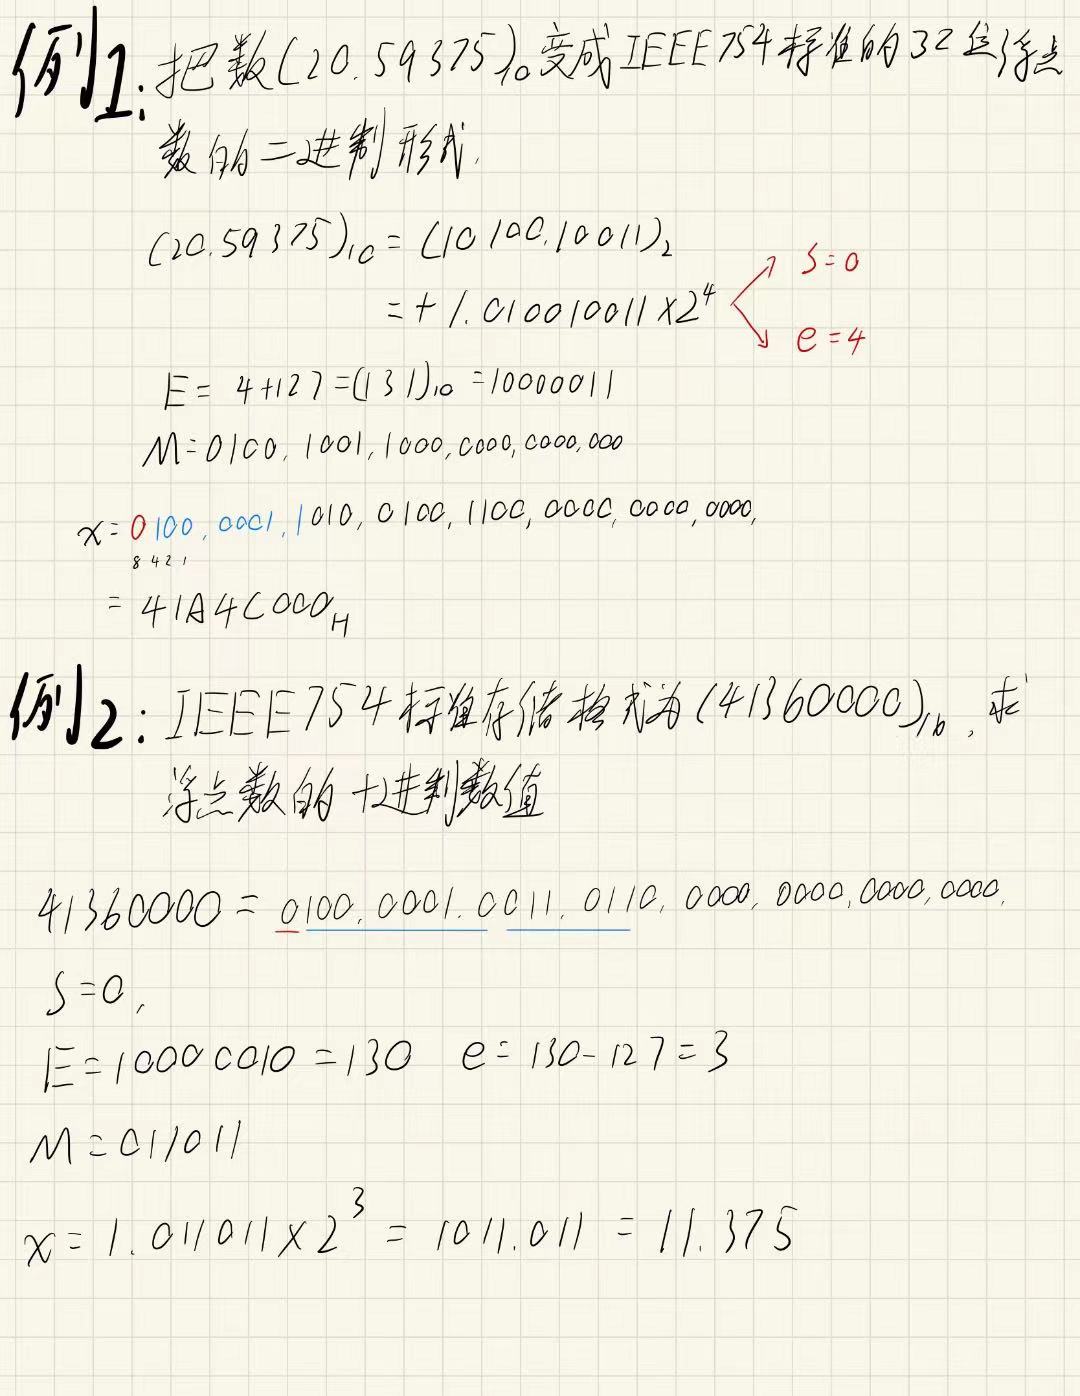 例1:把数(20.59375)₁₀变成IEEE754标准的32位浮点
数的二进制形式.
(20.59375)₁₀=(10100.10011)₂
=+1.010010011×2⁴
S=0
e=4
E=4+127=(131)₁₀=10000011
M=0100,1001,1000,0000,0000,000
x=0100,0001,1010,0100,1100,0000,0000,0000,
8 4 2 1
=41A4C000H
例2:IEEE754标准存储格式为(41360000)₁₆,求
浮点数的十进制数值
41360000=0100,0001.0011,0110,0000,0000,0000,0000,
S=0,
E=10000010=130 e=130-127=3
M=011011
x=1.011011×2³=1011.011=11.375